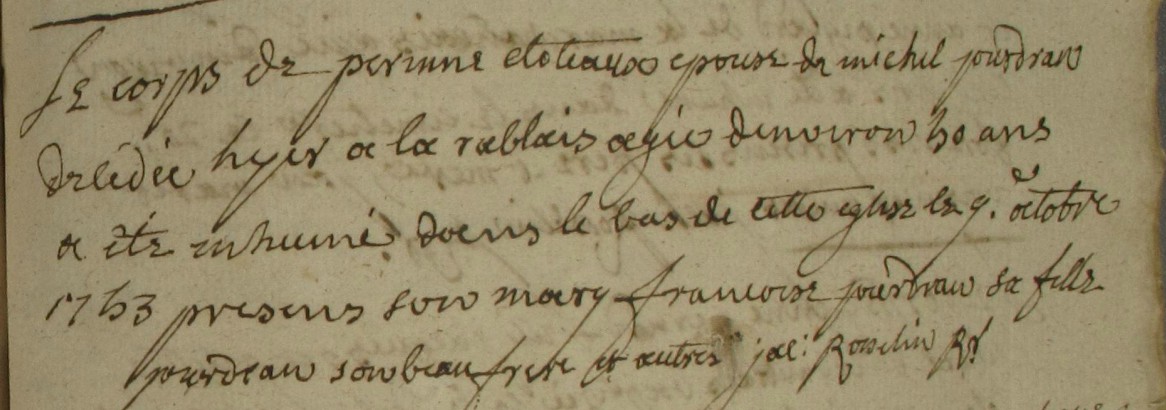 Le corps de perinne etoteaux epouse de michel jourdran
decedée hyer a la rablais agée denviron 50 ans
a été inhumé dans le bas de cette eglise le 9. octobre
1753 presens son mary francoise jourdrau sa fille
jourdeau son beau frere et autres jac: Rosselin